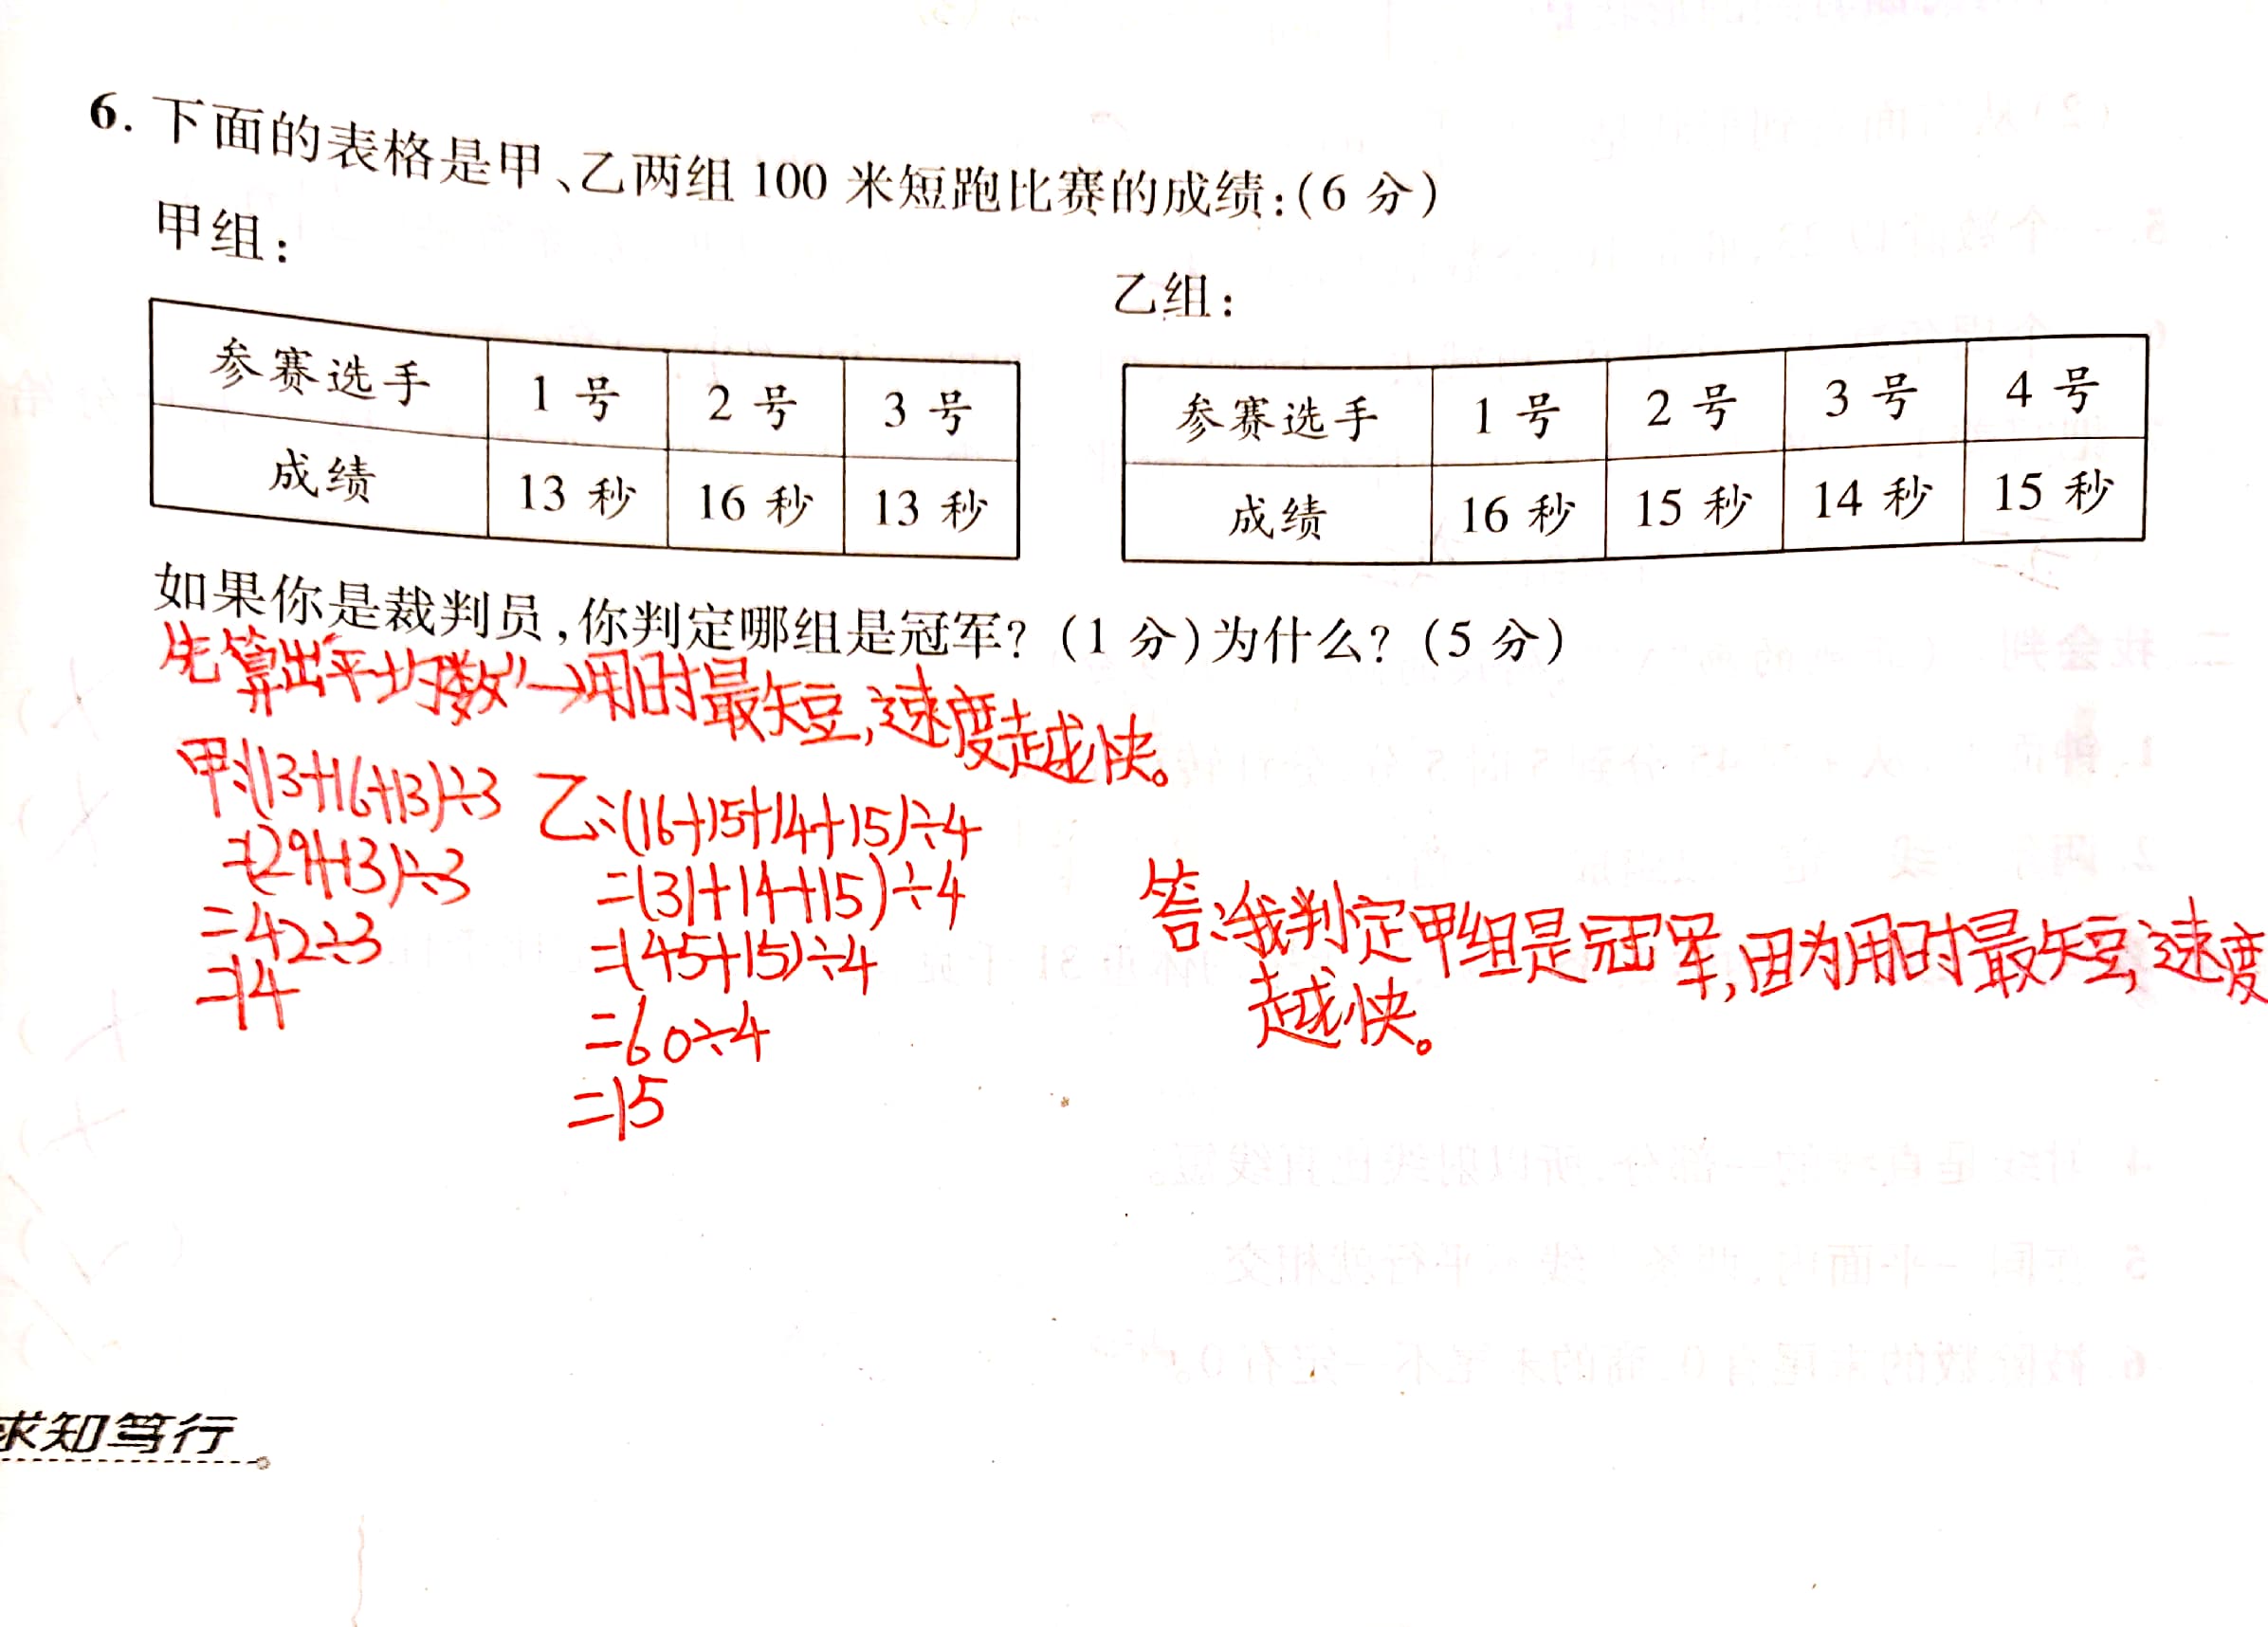 6. 下面的表格是甲、乙两组 100 米短跑比赛的成绩:(6 分)
甲组:
参赛选手 1 号 2 号 3 号
成绩 13 秒 16 秒 13 秒
乙组:
参赛选手 1 号 2 号 3 号 4 号
成绩 16 秒 15 秒 14 秒 15 秒
如果你是裁判员,你判定哪组是冠军? (1 分)为什么? (5 分)
先算出“平均数”→用时最短,速度越快。
甲:(13+16+13)÷3
=(29+13)÷3
=42÷3
=14
乙:(16+15+14+15)÷4
=(31+14+15)÷4
=(45+15)÷4
=60÷4
=15
答:我判定甲组是冠军,因为用时最短,速度
越快。
求知笃行